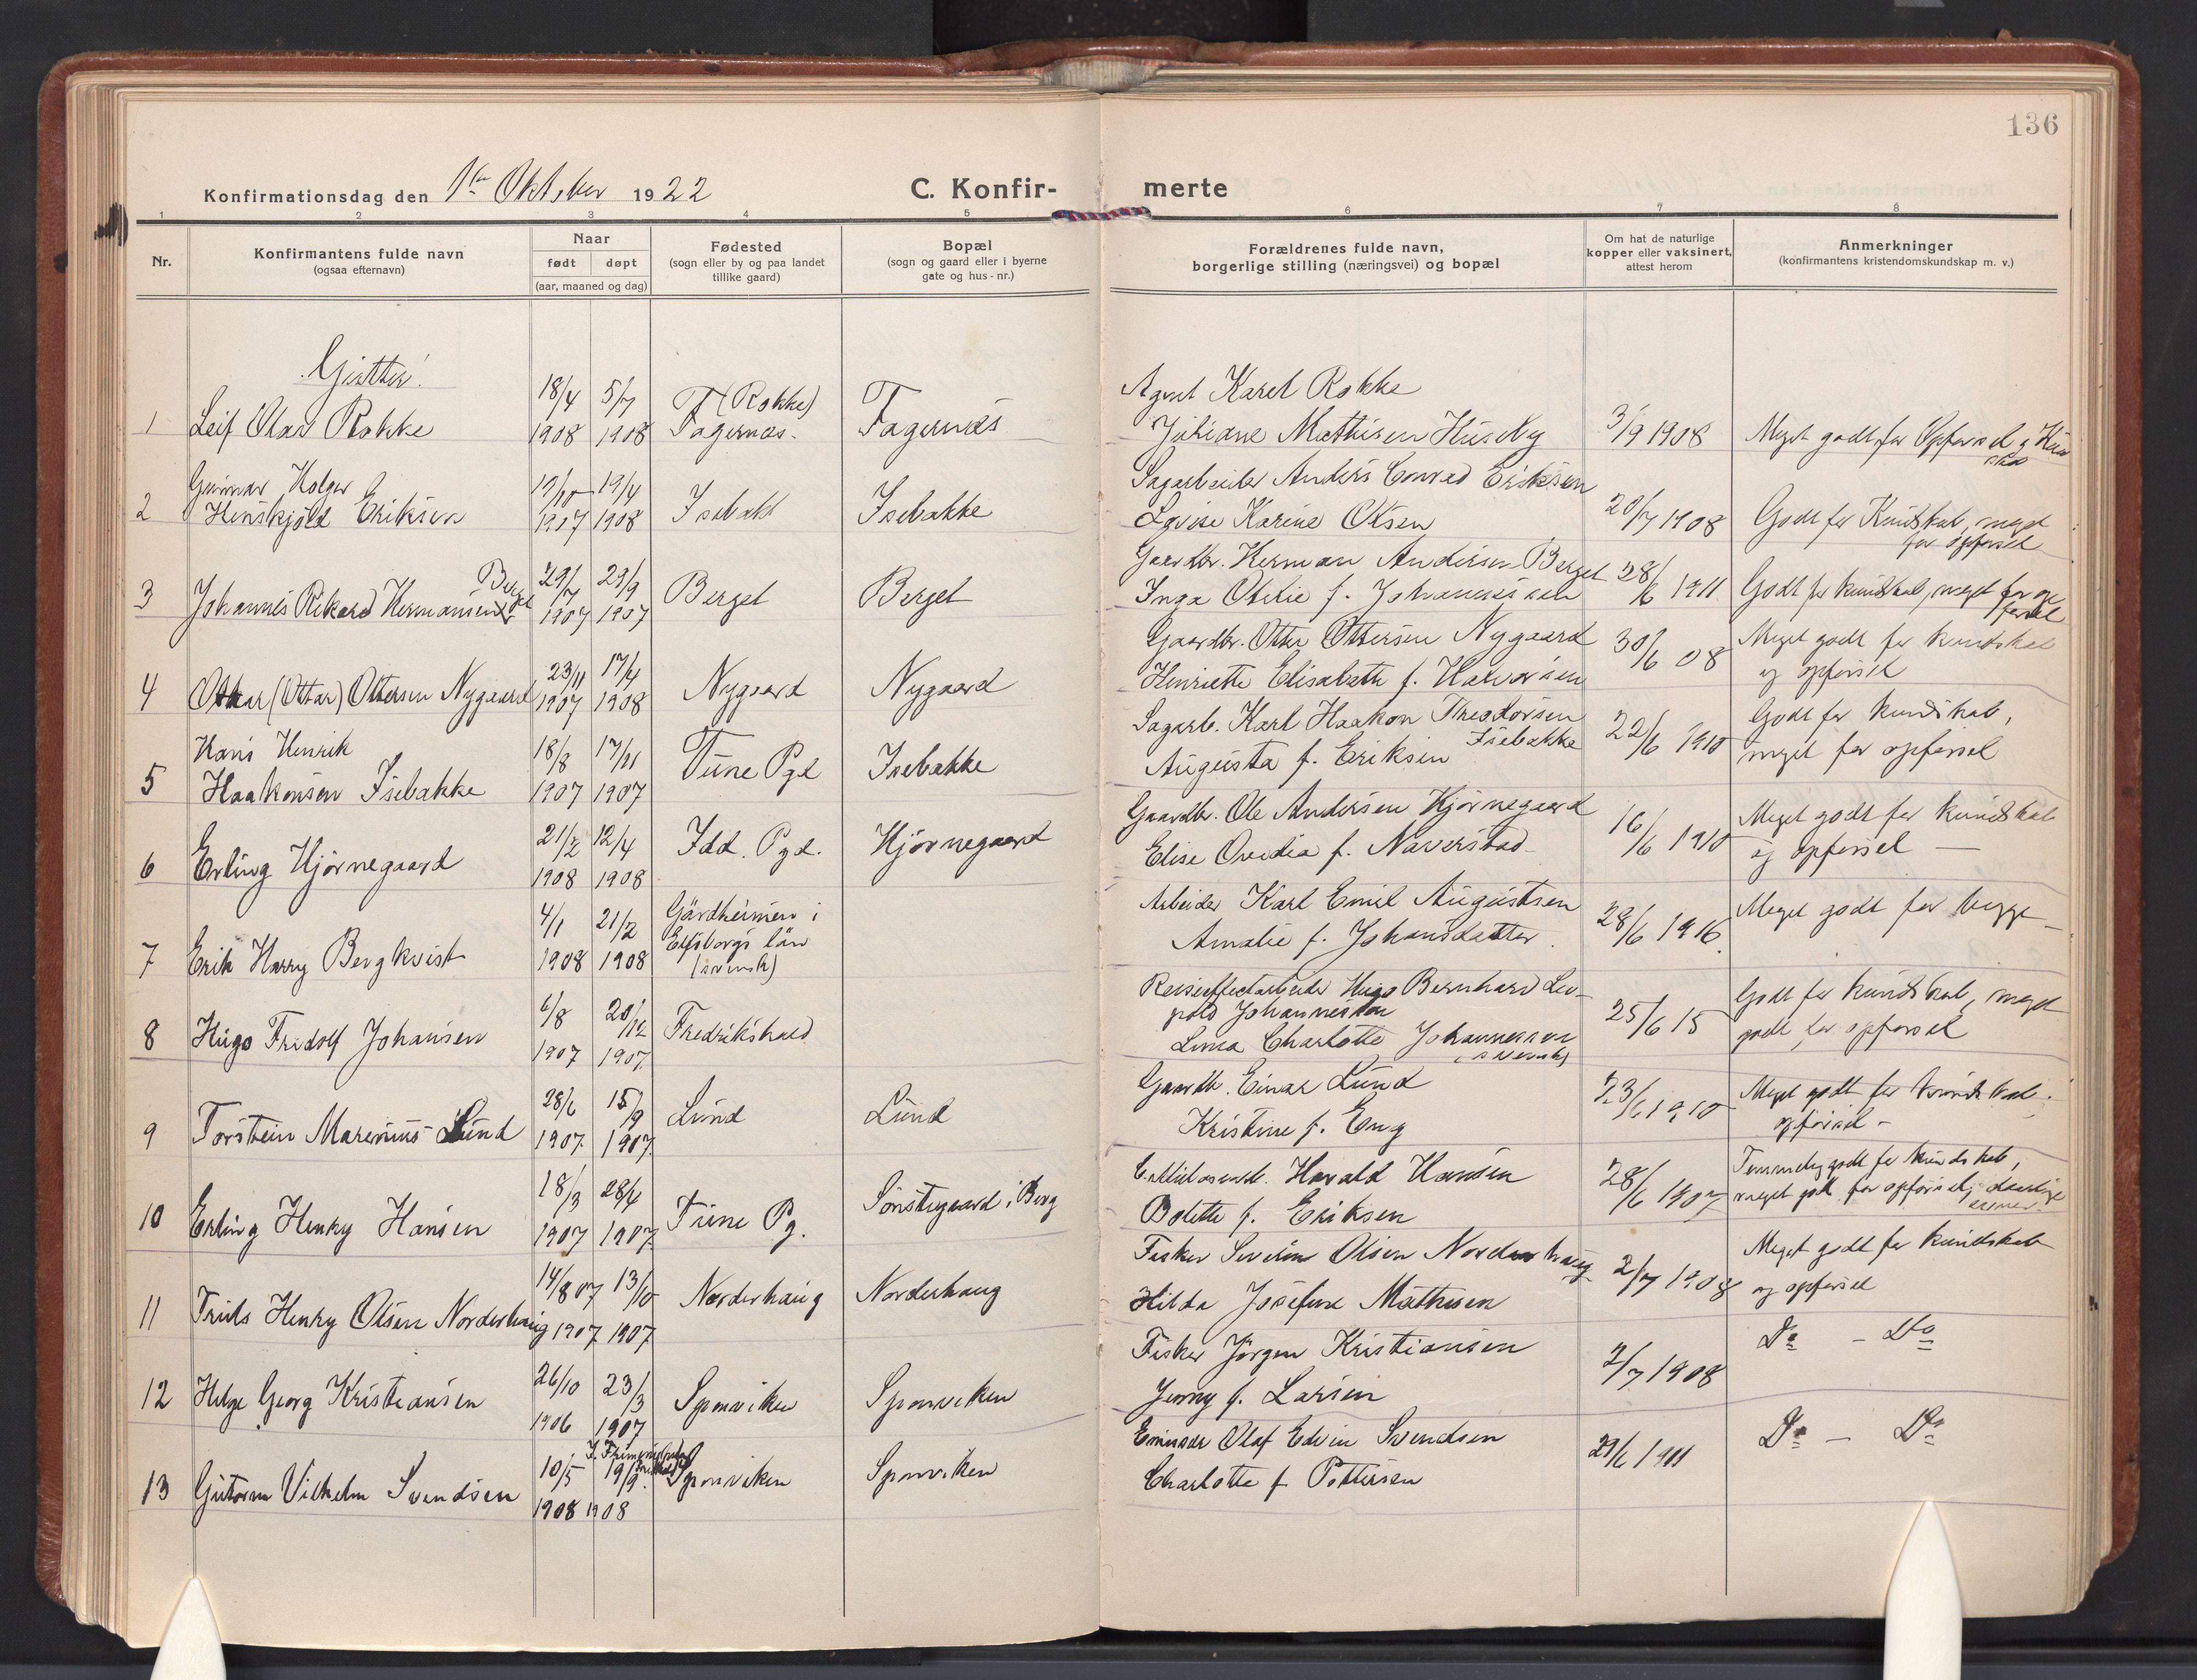 136
Konfirmationsdag den 1ste Oktober 1922
C. Konfir- merte
1 2 3 4 5 6 7 8
Nr.
Konfirmantens fulde navn
(ogsaa efternavn)
Naar
født døpt
(aar, maaned og dag)
Fødested
(sogn eller by og paa landet
tillike gaard)
Bopæl
(sogn og gaard eller i byerne
gate og hus-nr.)
Forældrenes fulde navn,
borgerlige stilling (næringsvei) og bopæl
Om hat de naturlige
kopper eller vaksinert,
attest herom
Anmerkninger
(konfirmantens kristendomskundskap m. v.)
Gutter.
18/4 5/7 (Rokke) Agent Karel Rokke
1 Leif Olav Rokke 1908 1908 Fagernæs. Fagernæs Juliane Mathisen Huseby 3/9 1908 Meget godt for Opførsel og
Gunnar Holger 19/10 19/4 Sagarbeider Anders Conrad Eriksen
2 Henskjöld Eriksen 1907 1908 Isebakk Isebakke Lovise Karine Olsen 20/7 1908 Godt for Kundskab, meget
for opførsel
Berget 29/7 29/9 Gaardbr. Herman Andersen Berget
3 Johannes Rikard Hermansen 1907 1907 Berget Berget Inga Otilie f. Johannessen 28/6 1911 Godt for kundskab, meget for op
førsel
23/11 17/4 Gaardbr. Otter Ottersen Nygaard Meget godt for kundskab
4 Ottar (Ottar) Ottersen Nygaard 1907 1908 Nygaard Nygaard Henriette Elisabeth f. Halvorsen 30/6 08 og opførsel
Hans Henrik 18/8 17/11 Sagarb. Karl Haakon Theodorsen Godt for kundskab,
Isebakke
5 Haakonsen Isebakke 1907 1907 Tune Pgd Isebakke Augusta f. Eriksen 22/6 1910 meget for opførsel
21/2 12/4 Gaardbr. Ole Andersen Hjørnegaard Meget godt for kundskab
6 Erling Hjørnegaard 1908 1908 Idd. Pgd. Hjørnegaard Elise Ovidia f. Naverstad 16/6 1910 og opførsel —
4/1 21/2 Gärdhemen i Arbeider Karl Emil Augustsen Meget godt for begge —
Elfsborgs län
7 Erik Harry Bergkvist 1908 1908 (svensk) Amalie f. Johansdatter. 28/6 1916
6/8 20/12 Reiseeffectarbeider Hugo Bernhard Leo- Godt for kundskab, meget
pold Johannesson
8 Hugo Fridolf Johansen 1907 1907 Fredrikshald Charlotte Johannesson 25/6 15 godt for opførsel
(svensk)
28/6 15/9 Gaardb. Einar Lund Meget godt for kundskab.
9 Torstein Marenius Lund 1907 1907 Lund Lund Kristine f. Eng 23/6 1910 opførsel -
18/3 28/4 Harald Hansen Temmelig godt for kundskab,
10 Erling Henry Hansen 1907 1907 Tune Pg. Sønstegaard i Berg Bolette f. Eriksen 28/6 1907 meget godt for opførsel,
14/8 07 13/10 Fisker Severin Olsen Norderhaug Meget godt for kundskab
11 Frits Henry Olsen Norderhaug 1907 1907 Norderhaug Norderhaug Hilda Josefine Mathisen 2/7 1908 og opførsel
26/10 23/3 Fisker Jørgen Kristiansen Do - Do
12 Helge Georg Kristiansen 1906 1907 Sponviken Sponviken Jenny f. Larsen 2/7 1908
10/5 19/9 Olaf Edvin Svendsen Do - Do
13 Gutorm Vilhelm Svendsen 1908 1908 Sponviken Sponviken Charlotte f. Pettersen 29/6 1911